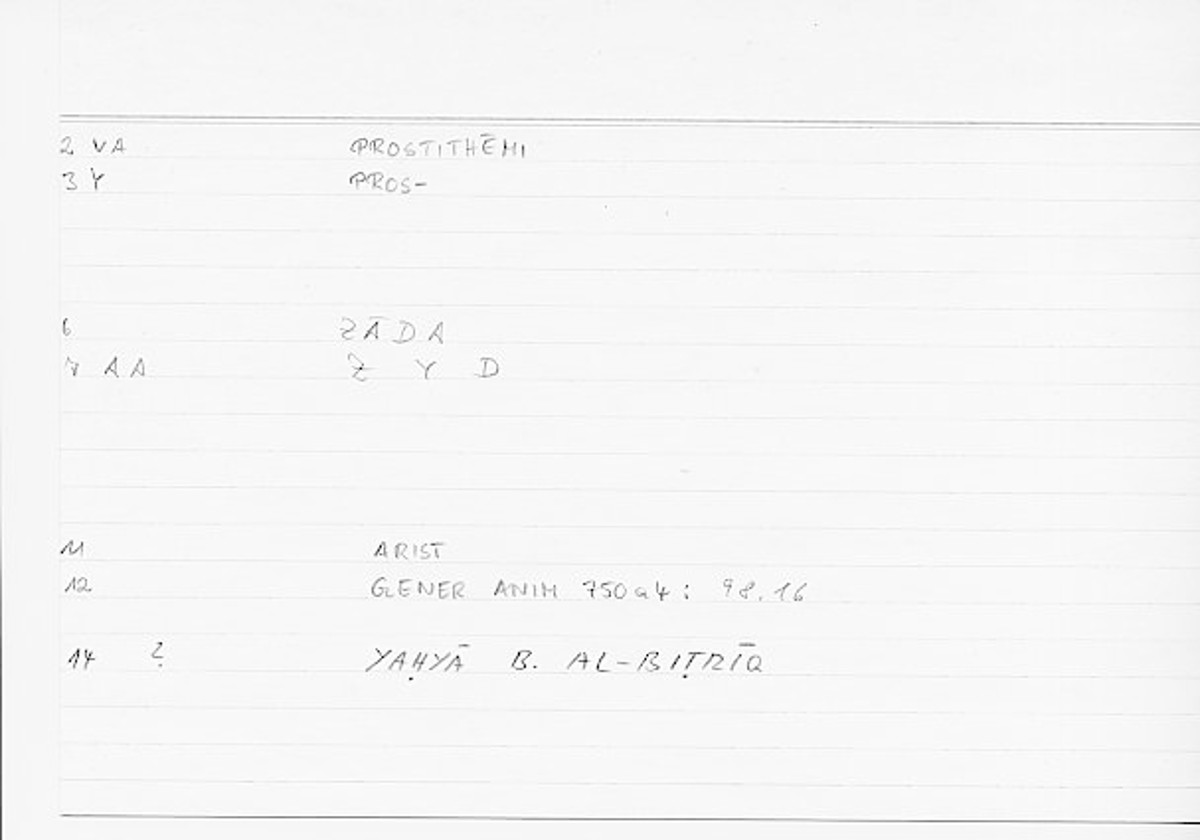 2 VA PROSTITHĒMI
3 Y PROS-
6 ZĀDA
7 AA Z Y D
11 ARIST
12 GENER ANIM 750a4: 98.16
14 ? YAḤYĀ B. AL-BIṬRĪQ